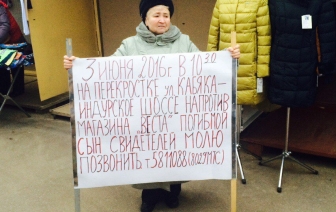 3 ИЮНЯ 2016г В 10 30
НА ПЕРЕКРОСТКЕ УЛ. КАБЯКА-
ИНДУРСКОЕ ШОССЕ НАПРОТИВ
МАГАЗИНА „ВЕСТА" ПОГИБ МОЙ
СЫН СВИДЕТЕЛЕЙ МОЛЮ
ПОЗВОНИТЬ Т 5811088 (8029МТС)